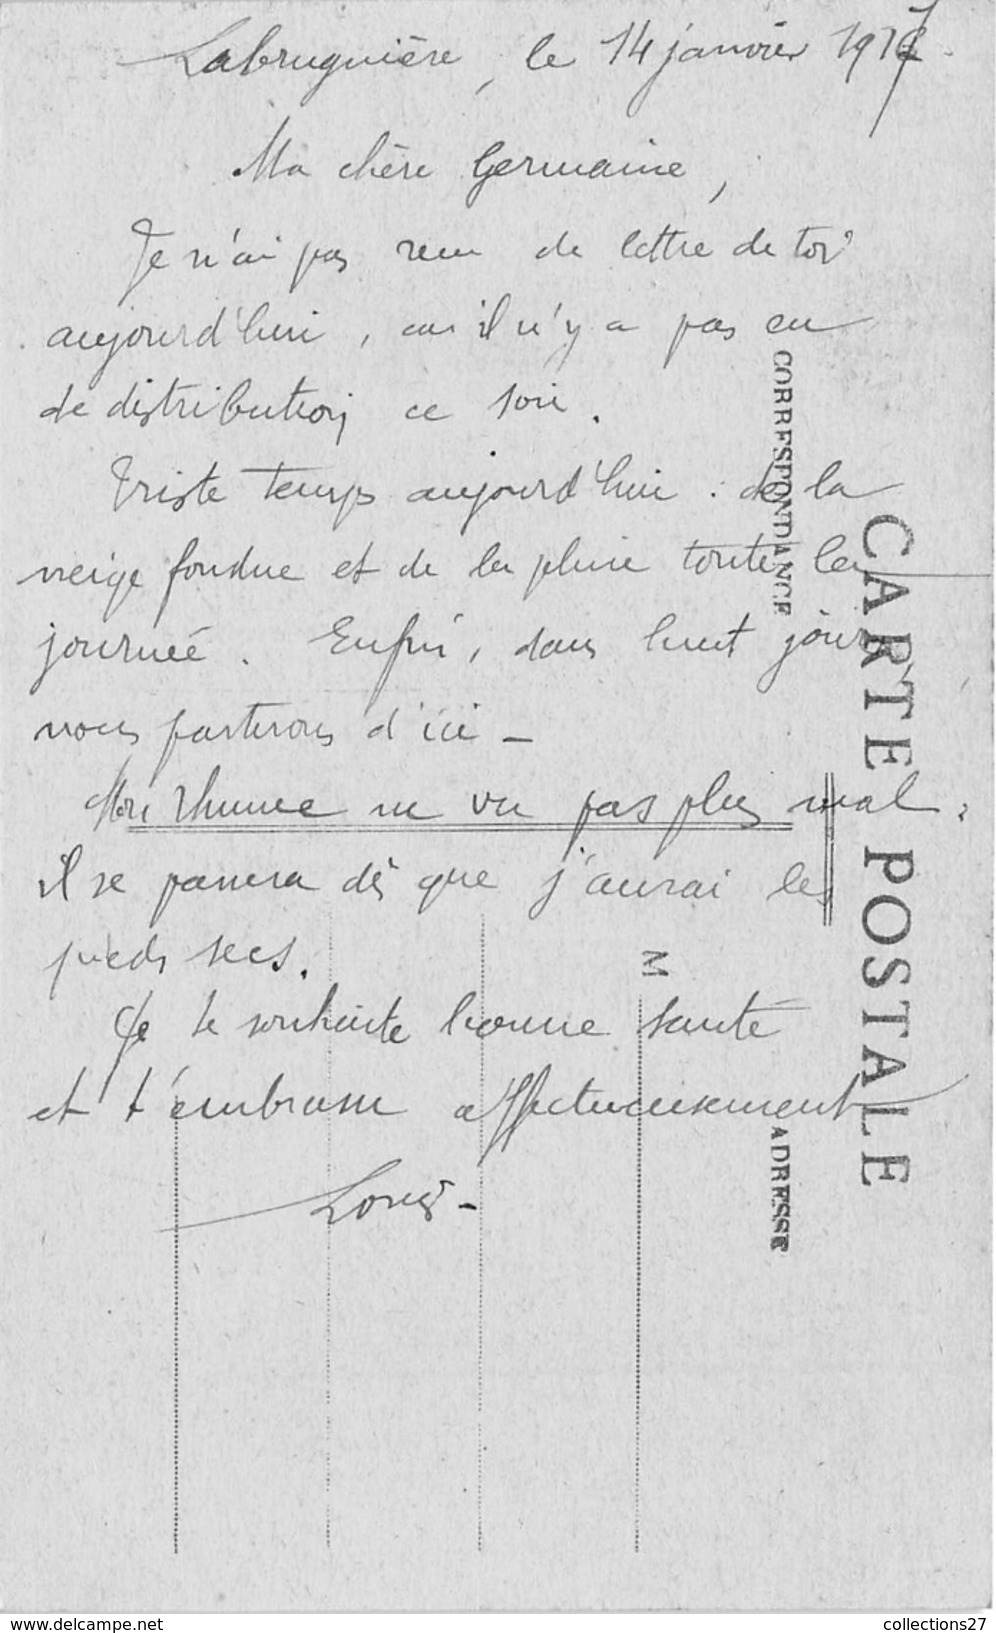 Labruguière, le 14 janvier 1917
Ma chère Germaine,
Je n'ai pas reçu de lettre de toi
aujourd'hui, car il n'y a pas eu
de distribution ce soir.
Triste temps aujourd'hui : de la
neige fondue et de la pluie toute la
journée. Enfin, dans huit jours,
nous partirons d'ici -
Mon rhume ne va pas plus mal,
il se passera dès que j'aurai les
pieds secs.
Je te souhaite bonne santé
et t'embrasse affectueusement
Louis -
CARTE POSTALE
CORRESPONDANCE
ADRESSE
M
www.delcampe.net
collections27